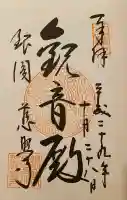 奉拝
平成二十九年
十月二十八日
観音殿
銀閣 慈照寺